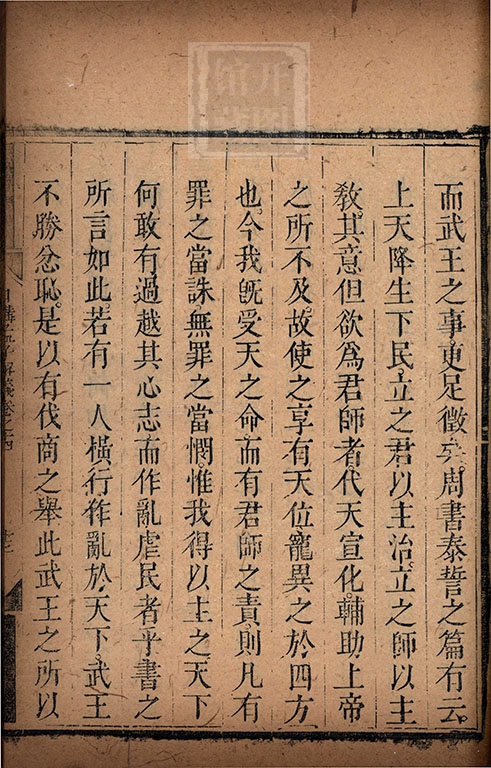 而武王之事更足徵矣周書泰誓之篇有云
上天降生下民立之君以主治立之師以主
敎其意但欲爲君師者代天宣化輔助上帝
之所不及故使之享有天位寵異之於四方
也今我旣受天之命而有君師之責則凡有
罪之當誅無罪之當憫惟我得以主之天下
何敢有過越其心志而作亂虐民者乎書之
所言如此若有一人橫行作亂於天下武王
不勝忿恥是以有伐商之舉此武王之所以